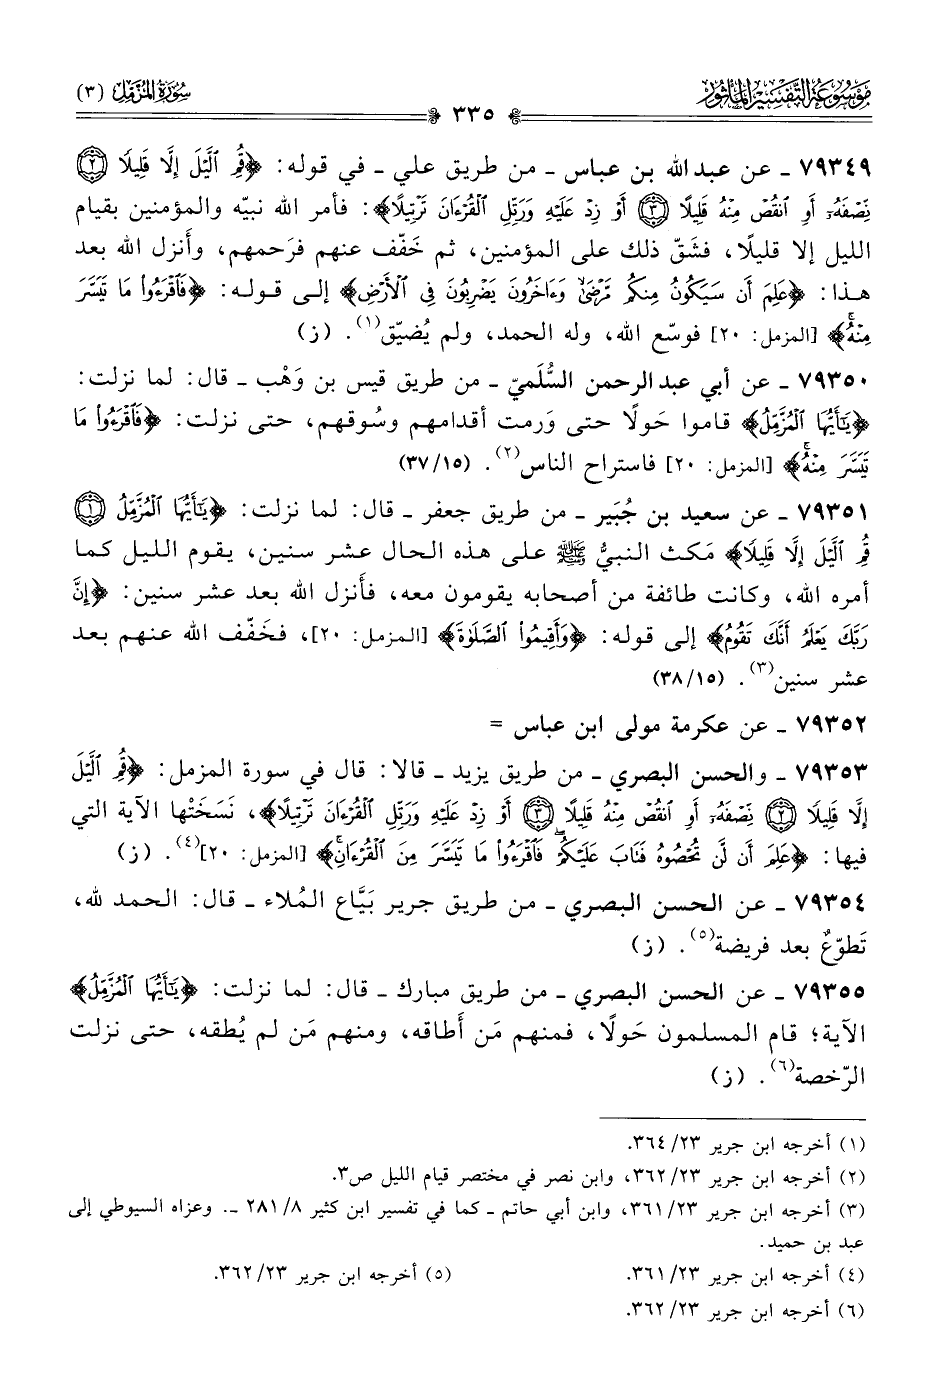 موسوعة التفسير المأثور
سورة المزمل (٣)
٣٣٥
٧٩٣٤٩ ـ عن عبد الله بن عباس ـ من طريق علي ـ في قوله: ﴿قُمِ ٱلَّيۡلَ إِلَّا قَلِيلًا ۝٢
نِّصۡفَهُۥٓ أَوِ ٱنقُصۡ مِنۡهُ قَلِيلًا ۝٣ أَوۡ زِدۡ عَلَيۡهِ وَرَتِّلِ ٱلۡقُرۡءَانَ تَرۡتِيلًا﴾: فأمر الله نبيّه والمؤمنين بقيام
الليل إلا قليلًا، فشَقّ ذلك على المؤمنين، ثم خَفّف عنهم فرَحمهم، وأَنزل الله بعد
هذا: ﴿عَلِمَ أَن سَيَكُونُ مِنكُم مَّرۡضَىٰ وَءَاخَرُونَ يَضۡرِبُونَ فِي ٱلۡأَرۡضِ﴾ إلى قوله: ﴿فَٱقۡرَءُواْ مَا تَيَسَّرَ
مِنۡهُۚ﴾ [المزمل: ٢٠] فوسّع الله، وله الحمد، ولم يُضيّق(١). (ز)
٧٩٣٥٠ ـ عن أبي عبد الرحمن السُّلَميّ ـ من طريق قيس بن وَهْب ـ قال: لما نزلت:
﴿يَٰٓأَيُّهَا ٱلۡمُزَّمِّلُ﴾ قاموا حَولًا حتى وَرمت أقدامهم وسُوقهم، حتى نزلت: ﴿فَٱقۡرَءُواْ مَا
تَيَسَّرَ مِنۡهُۚ﴾ [المزمل: ٢٠] فاستراح الناس(٢). (١٥/ ٣٧)
٧٩٣٥١ ـ عن سعيد بن جُبَير ـ من طريق جعفر ـ قال: لما نزلت: ﴿يَٰٓأَيُّهَا ٱلۡمُزَّمِّلُ ۝١
قُمِ ٱلَّيۡلَ إِلَّا قَلِيلًا﴾ مَكث النبيُّ ﷺ على هذه الحال عشر سنين، يقوم الليل كما
أمره الله، وكانت طائفة من أصحابه يقومون معه، فأَنزل الله بعد عشر سنين: ﴿إِنَّ
رَبَّكَ يَعۡلَمُ أَنَّكَ تَقُومُ﴾ إلى قوله: ﴿وَأَقِيمُواْ ٱلصَّلَوٰةَ﴾ [المزمل: ٢٠]، فخَفّف الله عنهم بعد
عشر سنين(٣). (١٥/ ٣٨)
٧٩٣٥٢ ـ عن عكرمة مولى ابن عباس =
٧٩٣٥٣ ـ والحسن البصري ـ من طريق يزيد ـ قالا: قال في سورة المزمل: ﴿قُمِ ٱلَّيۡلَ
إِلَّا قَلِيلًا ۝٢ نِّصۡفَهُۥٓ أَوِ ٱنقُصۡ مِنۡهُ قَلِيلًا ۝٣ أَوۡ زِدۡ عَلَيۡهِ وَرَتِّلِ ٱلۡقُرۡءَانَ تَرۡتِيلًا﴾، نَسَخَتْها الآية التي
فيها: ﴿عَلِمَ أَن لَّن تُحۡصُوهُ فَتَابَ عَلَيۡكُمۡۖ فَٱقۡرَءُواْ مَا تَيَسَّرَ مِنَ ٱلۡقُرۡءَانِۚ﴾ [المزمل: ٢٠](٤). (ز)
٧٩٣٥٤ ـ عن الحسن البصري ـ من طريق جرير بَيَّاع المُلاء ـ قال: الحمد لله،
تَطوّعٌ بعد فريضة(٥). (ز)
٧٩٣٥٥ ـ عن الحسن البصري ـ من طريق مبارك ـ قال: لما نزلت: ﴿يَٰٓأَيُّهَا ٱلۡمُزَّمِّلُ﴾
الآية؛ قام المسلمون حَولًا، فمنهم مَن أَطاقه، ومنهم مَن لم يُطقه، حتى نزلت
الرّخصة(٦). (ز)
(١) أخرجه ابن جرير ٢٣/ ٣٦٤.
(٢) أخرجه ابن جرير ٢٣/ ٣٦٢، وابن نصر في مختصر قيام الليل ص٣.
(٣) أخرجه ابن جرير ٢٣/ ٣٦١، وابن أبي حاتم ـ كما في تفسير ابن كثير ٨/ ٢٨١ ـ. وعزاه السيوطي إلى
عبد بن حميد.
(٤) أخرجه ابن جرير ٢٣/ ٣٦١. (٥) أخرجه ابن جرير ٢٣/ ٣٦٢.
(٦) أخرجه ابن جرير ٢٣/ ٣٦٢.